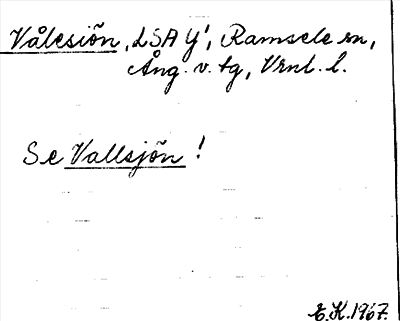 Vålesiön, LSA Y', Ramsele sn,
Ång. v. tg, Vrnl. l.
Se Vallsjön!
E.K. 1967.